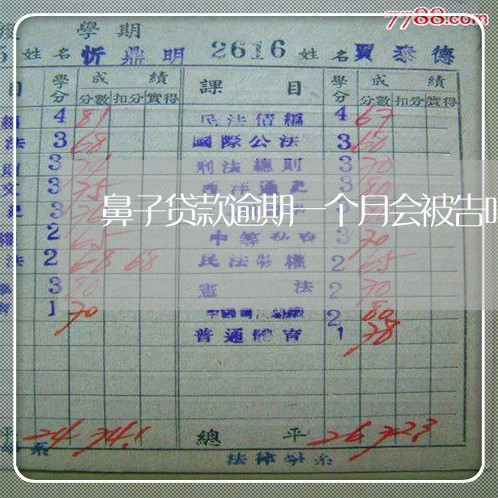 7788.com
學期
姓名 忻鼎明 2616 姓名 賈泰德
目 學分 成績 課目 學分 成績
分數 扣分 實得 分數 扣分 實得
4 81 民法債編 4 67
法 3 68 國際公法 3 60
3 刑法總則 3 70
文 3 75 西洋通史 3 80
鼻子贷款逾期一个月会被告吗
2 65 3 70
法 2 68 68 民法物權 2 65
3 80 憲法 2 70
育 1 70 2 80
普通體育 1 78
平 24 74.1 總平 26 72.3
系 法律學系